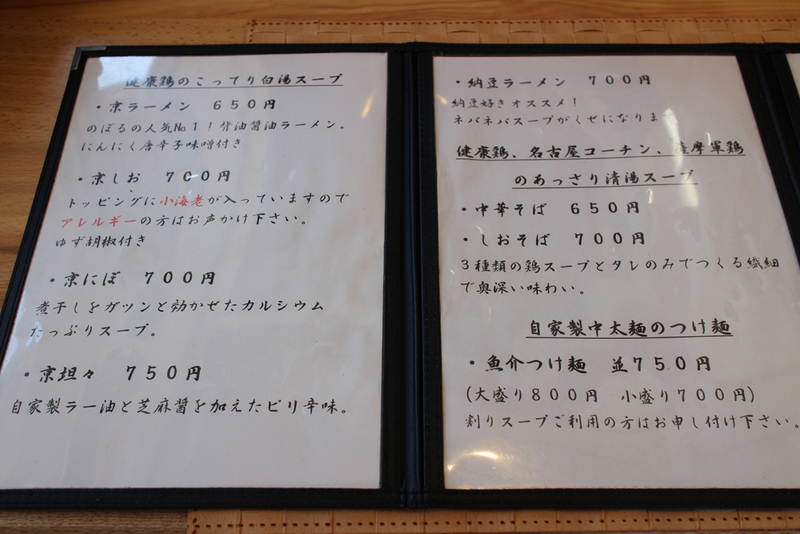 健康鶏のこってり白湯スープ
・京ラーメン ６５０円
のぼるの人気№１！背油醤油ラーメン。
にんにく唐辛子味噌付き
・京しお ７００円
トッピングに小海老が入っていますので
アレルギーの方はお声かけ下さい。
ゆず胡椒付き
・京にぼ ７００円
煮干しをガツンと効かせたカルシウム
たっぷりスープ。
・京坦々 ７５０円
自家製ラー油と芝麻醤を加えたピリ辛味。
・納豆ラーメン ７００円
納豆好きオススメ！
ネバネバスープがくせになりま
健康鶏、名古屋コーチン、薩摩軍鶏
のあっさり清湯スープ
・中華そば ６５０円
・しおそば ７００円
３種類の鶏スープとタレのみでつくる繊細
で奥深い味わい。
自家製中太麺のつけ麺
・魚介つけ麺 並７５０円
(大盛り８００円 小盛り７００円)
割りスープご利用の方はお申し付け下さい。